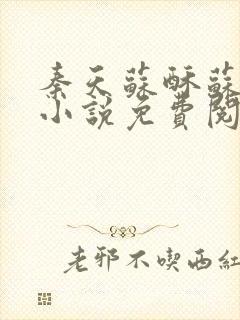 秦天蘇酥蘇
小說免費閱
老邪不喫西紅